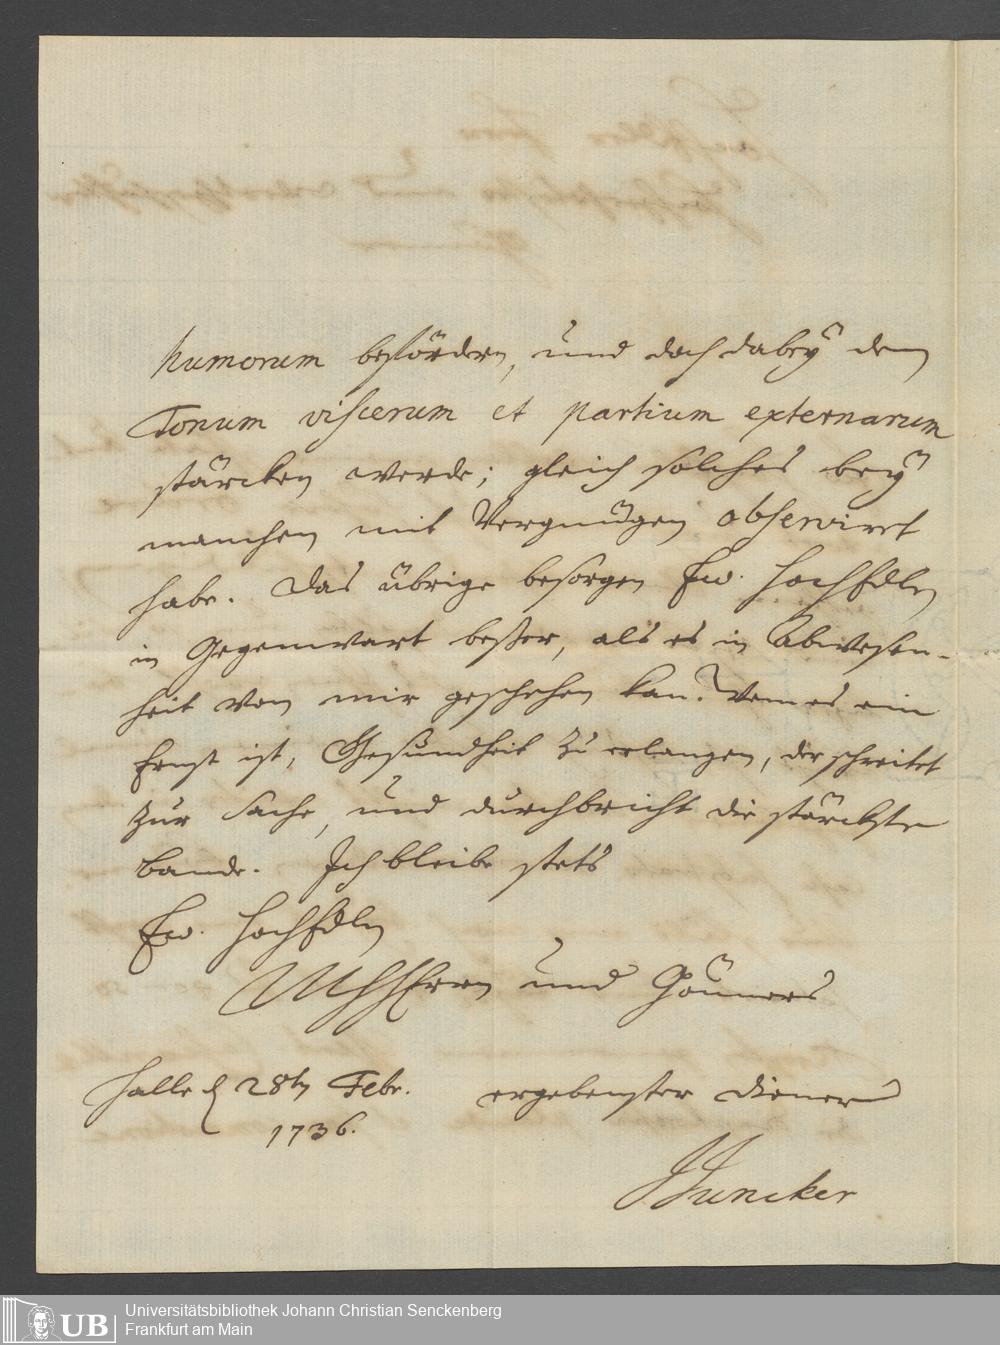 humorum befördern, und doch dabey den
Tonum viscerum et partium externarum
stärcken werde; gleich solches bey
manchen mit Vergnügen observiret
habe. Das übrige besorgen Ew. HochEdlen
in Gegenwart beßer, als es in Abwesen-
heit von mir geschehen kan. Wem es ein
Ernst ist, Gesundheit zu erlangen, der schreitet
zur Sache, und durchbricht die stärckste
Bande. Ich bleibe stets
Ew. HochEdlen
MHHErrn und Gönners
Halle d 28ten Febr. ergebenster Diener
1736.
JJuncker
UB
Universitätsbibliothek Johann Christian Senckenberg
Frankfurt am Main